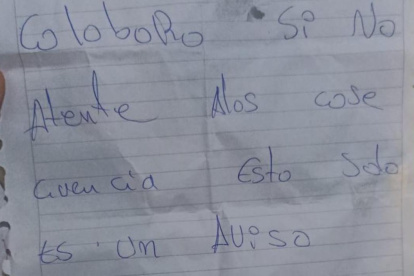 ColoboRo Si No
Atente Alos cose
cuencia Esto Solo
Es un Aviso